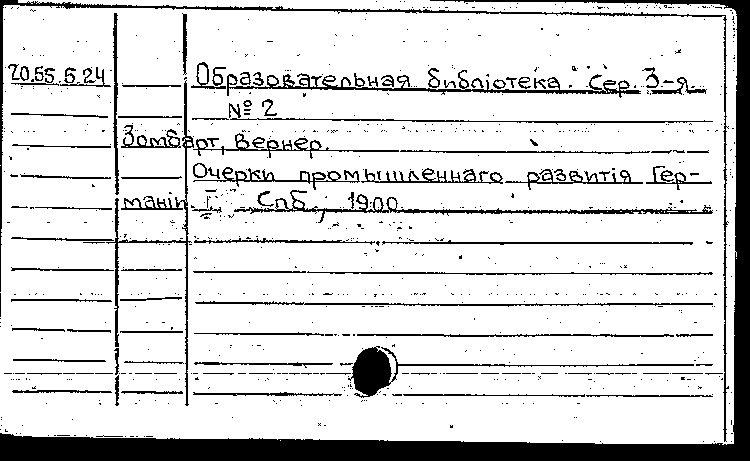 20.55.5.24 Образовательная библіотека. Сер. 3-я.
№ 2
Зомбарт, Вернер.
Очерки промышленнаго развитія Гер-
маніи. I. Спб., 1900